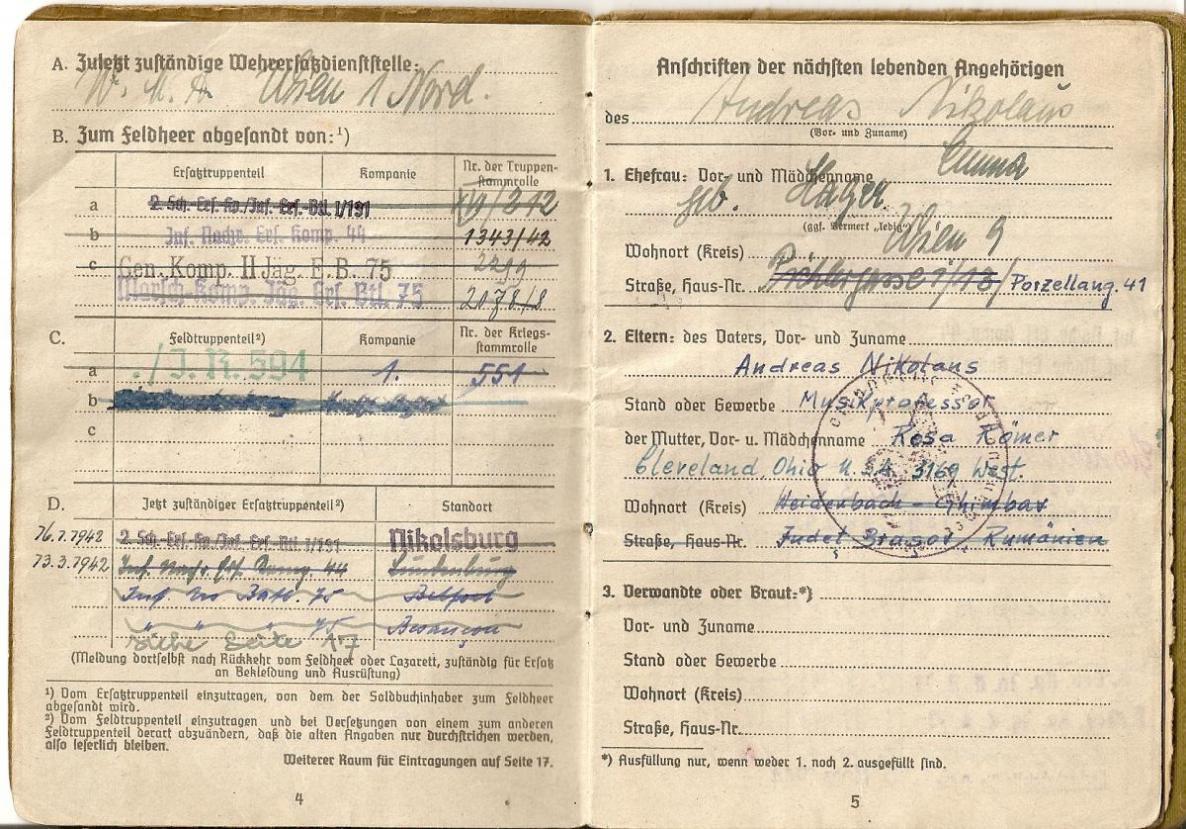 A. Zuletzt zuständige Wehrersatzdienststelle:
W. M. A. Wien 1 Nord.
B. Zum Feldheer abgesandt von:¹)
Ersatztruppenteil Kompanie Nr. der Truppenstammrolle
a 2. Sch.-Ers.-Kp./Inf.-Ers.-Btl. I/131 /312
b Inf. Nachr. Ers. Komp. 44 1343/42
c Gen. Komp. II Jäg. E. B. 75 2299
Marsch-Komp. Jäg. Ers. Btl. 75 2078/8
C. Feldtruppenteil²) Kompanie Nr. der Kriegsstammrolle
a ./J.R. 594 1. 551
b
c
D. Jetzt zuständiger Ersatztruppenteil²) Standort
16.1.1942 2. Sch.-Ers.-Kp./Inf.-Ers.-Btl. I/131 Nikolsburg
13.3.1942 Inf. Nachr. Ers. Komp. 44 Lundenburg
Inf. Batl. 75 Belfort
" " " 75 Besançon
siehe Seite 17
(Meldung dortselbst nach Rückkehr vom Feldheer oder Lazarett, zuständig für Ersatz
an Bekleidung und Ausrüstung)
¹) Vom Ersatztruppenteil einzutragen, von dem der Soldbuchinhaber zum Feldheer
abgesandt wird.
²) Vom Feldtruppenteil einzutragen und bei Versetzungen von einem zum anderen
Feldtruppenteil derart abzuändern, daß die alten Angaben nur durchstrichen werden,
also leserlich bleiben.
Weiterer Raum für Eintragungen auf Seite 17.
4
Anschriften der nächsten lebenden Angehörigen
des Andreas Nikolaus
(Vor- und Zuname)
1. Ehefrau: Vor- und Mädchenname Emma
geb. Hayer
(ggf. Vermerk „ledig")
Wohnort (Kreis) Wien 9
Straße, Haus-Nr. Pichlergasse 1/13/ Porzellang. 41
2. Eltern: des Vaters, Vor- und Zuname
Andreas Nikolaus
Stand oder Gewerbe Musikprofessor
der Mutter, Vor- u. Mädchenname Rosa Römer
Cleveland, Ohio U.S.A. 3169 West.
Wohnort (Kreis) Heidenbach - Ghimbav
Straße, Haus-Nr. Judet Brasov, Rumänien
3. Verwandte oder Braut:*)
Vor- und Zuname
Stand oder Gewerbe
Wohnort (Kreis)
Straße, Haus-Nr.
*) Ausfüllung nur, wenn weder 1. noch 2. ausgefüllt sind.
5